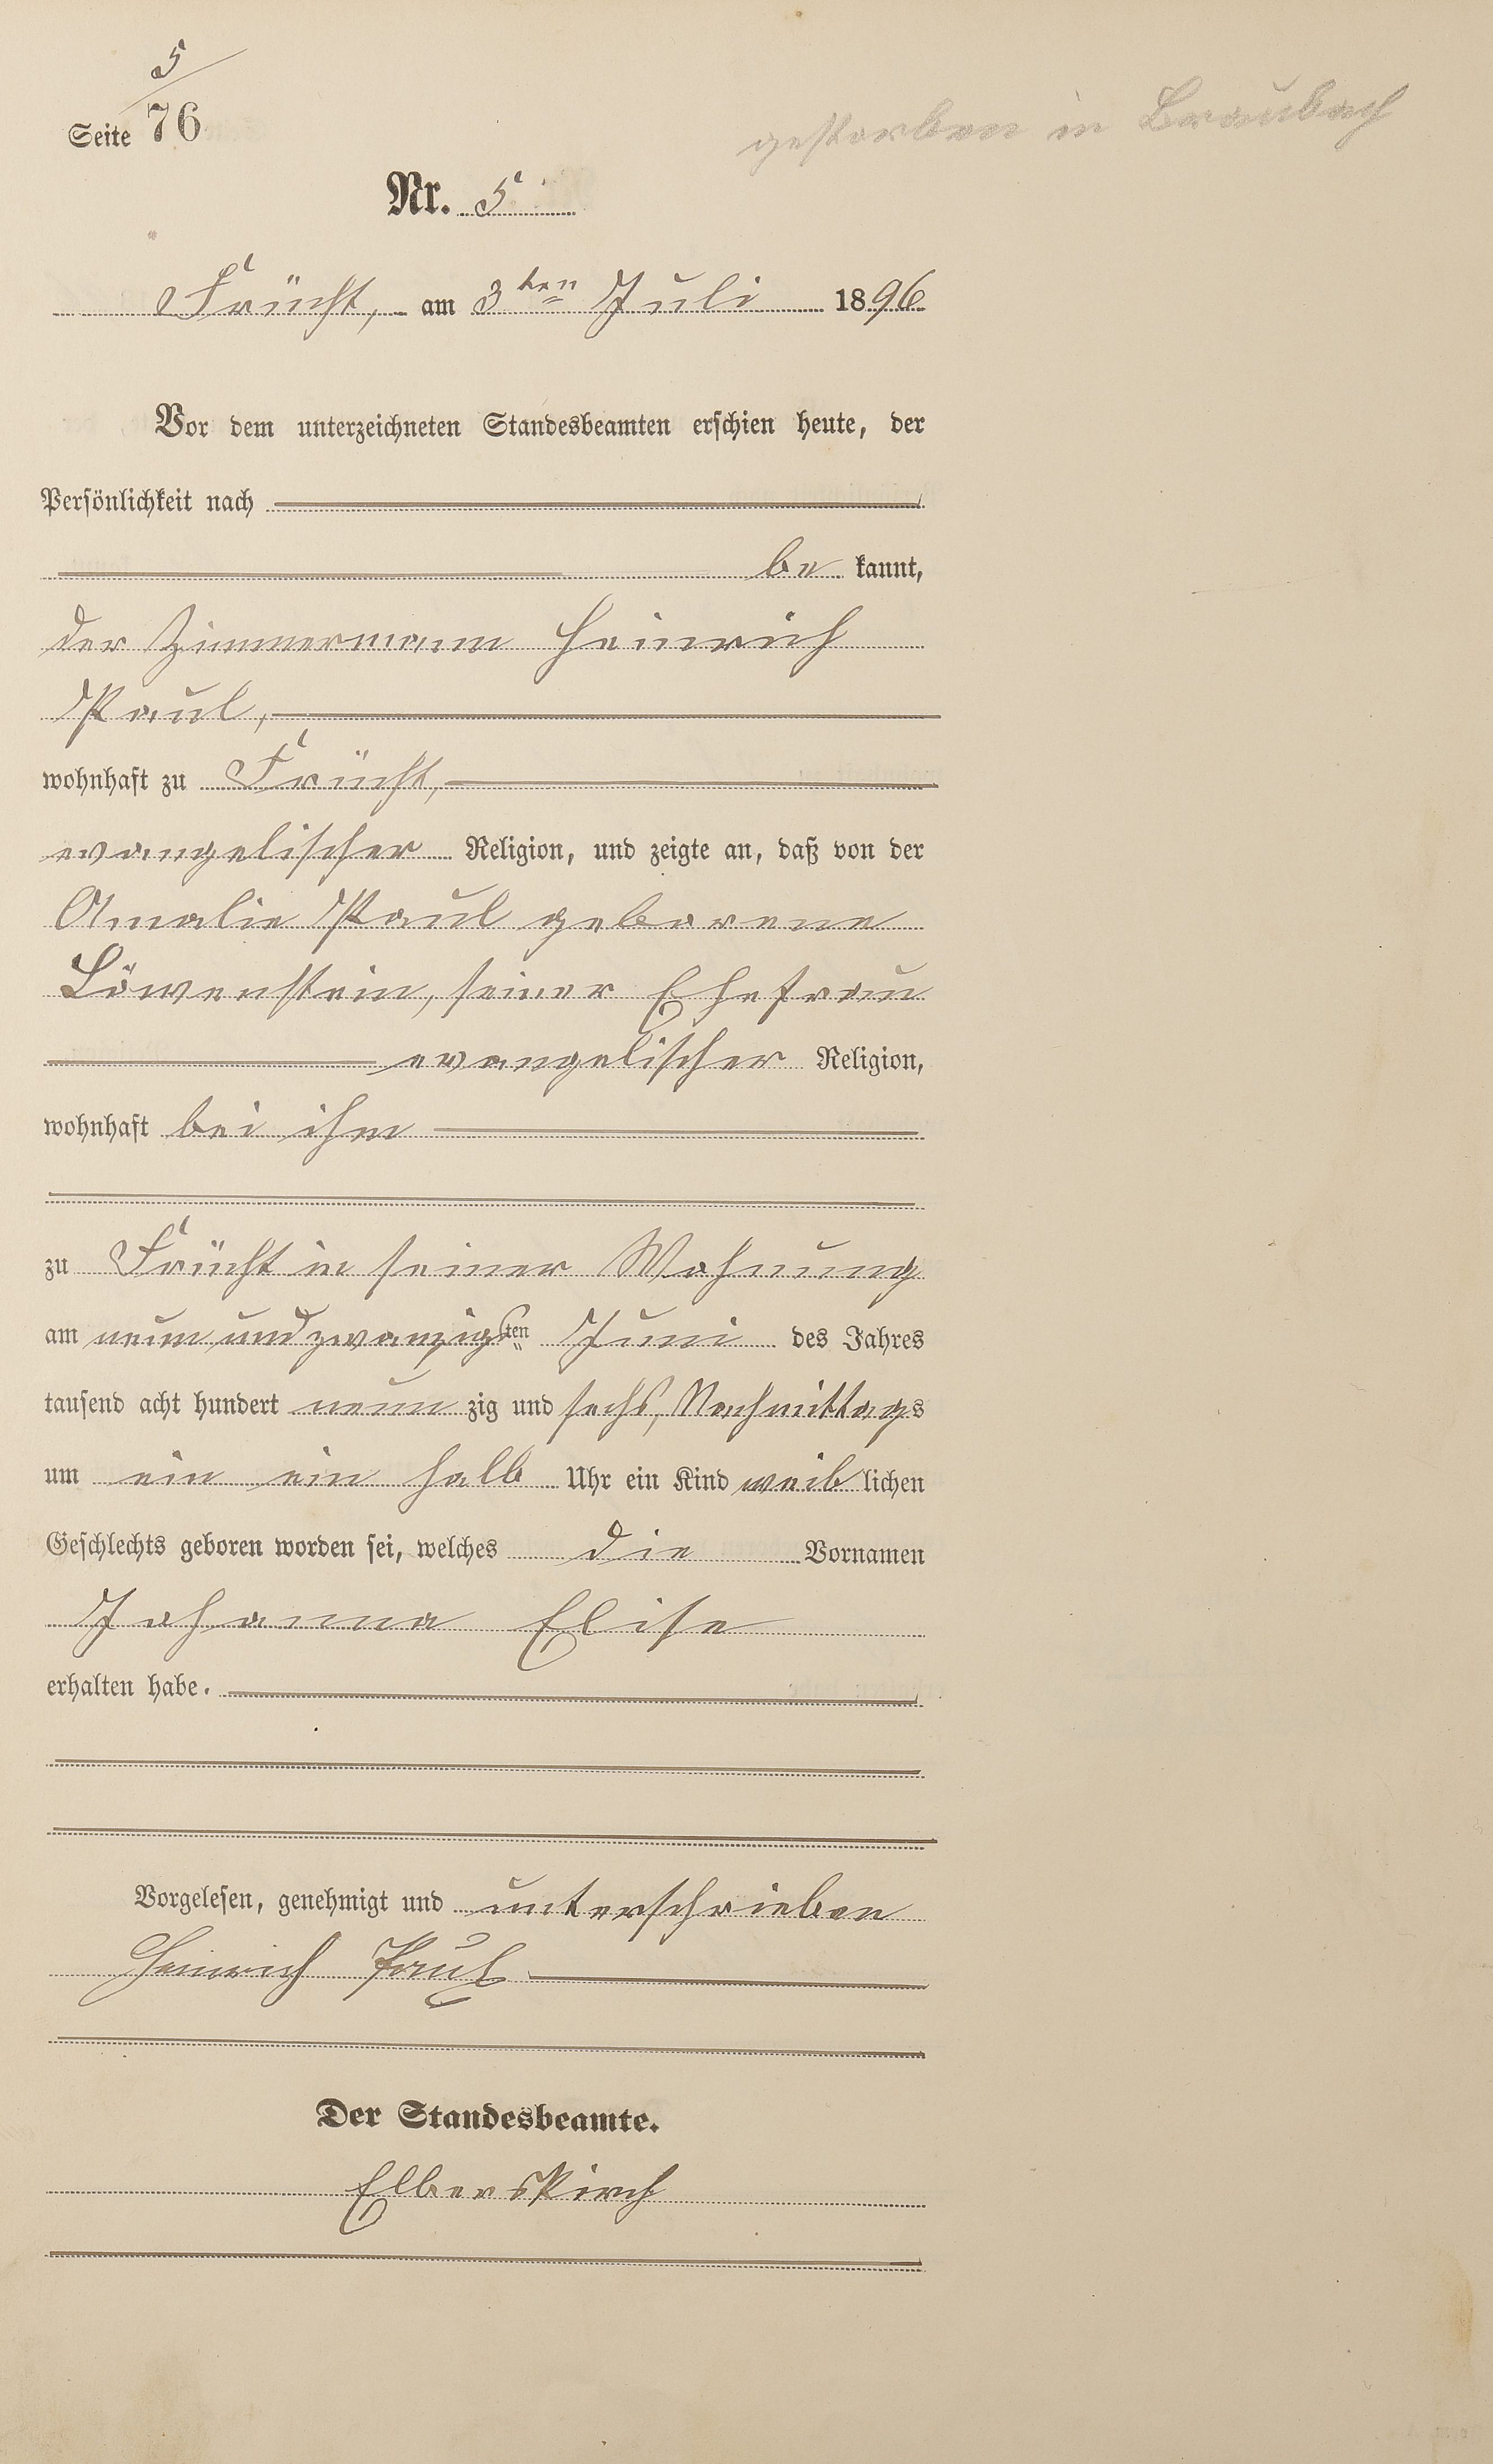 5
Seite 76
gestorben in Braubach
Nr. 5
Frücht, am 3ten Juli 1896
Vor dem unterzeichneten Standesbeamten erschien heute, der
Persönlichkeit nach
be kannt,
der Zimmermann Heinrich
Paul,
wohnhaft zu Frücht,
evangelischer Religion, und zeigte an, daß von der
Amalie Paul geborene
Löwenstein, seiner Ehefrau
evangelischer Religion,
wohnhaft bei ihm
zu Frücht in seiner Wohnung
am neun und zwanzigsten Juni des Jahres
tausend acht hundert neun zig und sechs, Nachmittags
um ein ein halb Uhr ein Kind weib lichen
Geschlechts geboren worden sei, welches die Vornamen
Johanna Elise
erhalten habe.
Vorgelesen, genehmigt und unterschrieben
Heinrich Paul
Der Standesbeamte.
Elberskirch